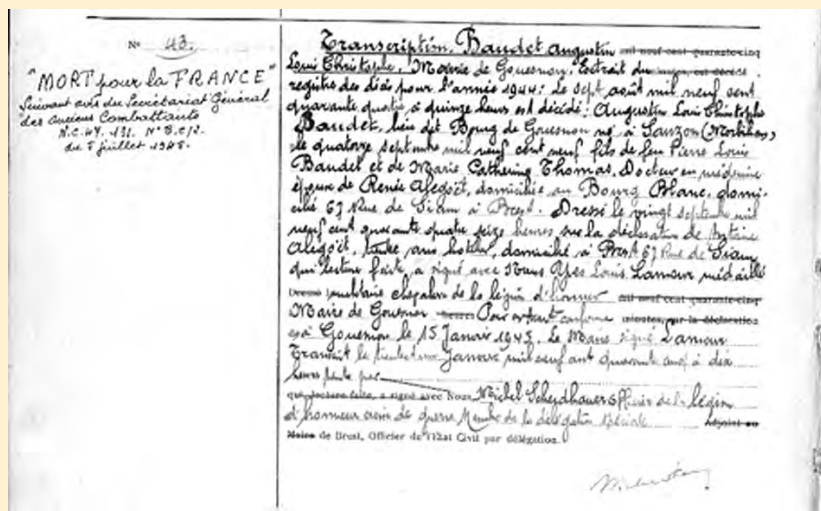 N° 43.
"MORT pour la FRANCE"
Suivant avis du Secrétariat Général
des Anciens Combattants
du 5 juillet 1945.
Transcription. Baudet Augustin mil neuf cent quarante cinq
Louis Christophe. Mairie de Gouesnou. Extrait du
registre des décès pour l'année 1944: Le sept août mil neuf cent
quarante quatre à quinze heures est décédé: Augustin Louis Christophe
Baudet, lieu dit Bourg de Gouesnou né à Sauzon (Morbihan)
le quatorze septembre mil neuf cent neuf fils de feu Pierre Louis
Baudet et de Marie Catherine Thomas, Docteur en médecine
époux de Renée domiciliée au Bourg Blanc, domi-
cilié 67 Rue de Siam à Brest. Dressé le vingt septembre mil
neuf cent quarante quatre seize heures sur la déclaration de Antoine
domicilié à Brest 67 Rue de Siam
qui lecture faite, a signé avec Nous Yves Louis Lamour médaillé
militaire chevalier de la légion d'honneur mil neuf cent quarante-cinq
Maire de Gouesnou heures Pour extrait conforme minutes, sur la déclaration
à Gouesnou le 15 Janvier 1945. Le Maire signé Lamour
Transcrit le Janvier mil neuf cent quarante cinq à dix
heures trente par
qui, lecture faite, a signé avec Nous, Michel Officier de la légion
d'honneur croix de guerre Membre de la délégation spéciale Adjoint au
Maire de Brest, Officier de l'État Civil par délégation.